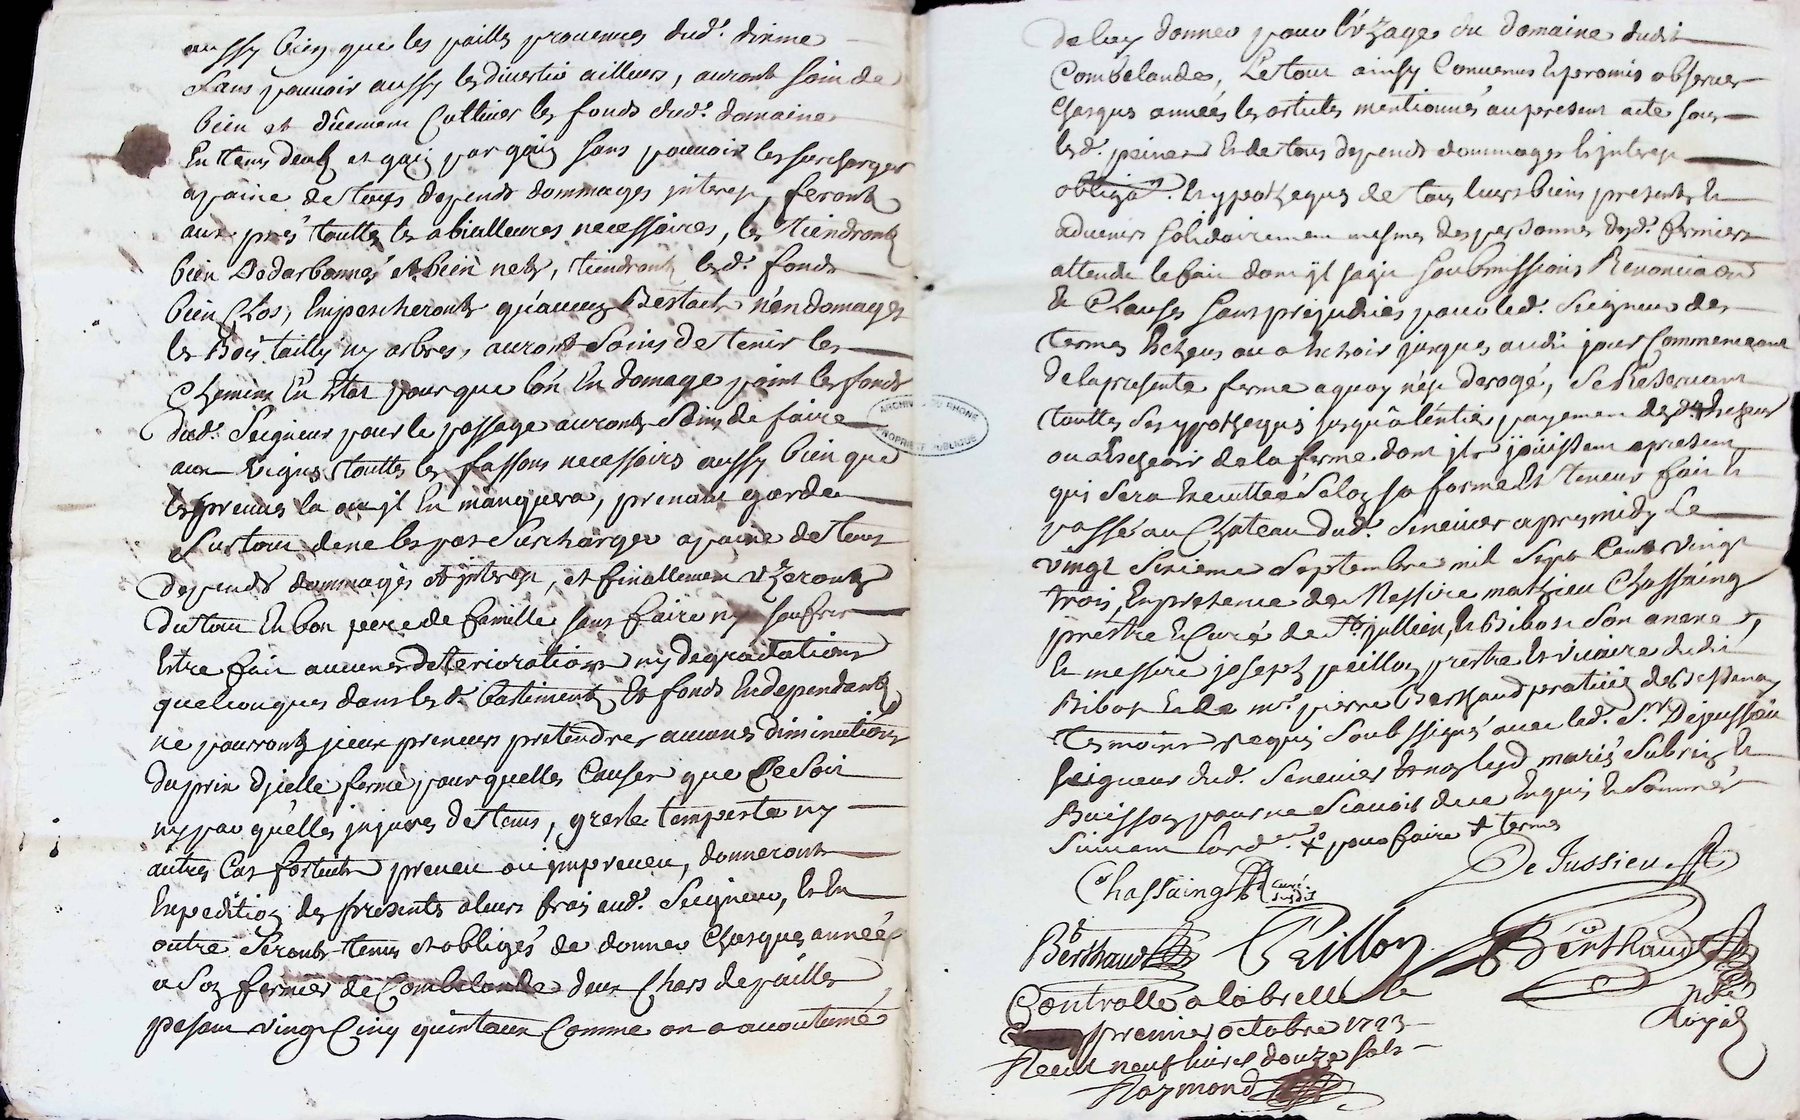 aussy bien que les pailles provenues dud. dixme
sans pouvoir aussy les divertir ailleurs, auront soin de
bien et düemem Cultiver les fonds dud. domaine
En tems deub et gaig par gaig sans pouvoir les surcharger
a paine de tous depends dommages interep, feront
aux prés touttes les abialleures necessaires, les tiendront
bien et bien nets, tiendront lesd. fonds
bien Clos, Empescheronts qu'aucung Bestach n'en domages
les Bois taillis ny arbres, auront Soins de tenir les
Chemins En Etat pour que l'on En domage point les fonds
dud. Seigneur pour le passage auronts Soins de faire
aux Vignes touttes les fassons necessaires aussy bien que
les preuves la ou jl En manquera, prenant garde
Surtout de ne les pas Surcharger a paine de tous
depends dommages et jnterep, et finallemen Uzeronts
du tout En bon pere de famille sans faire ny soufrir
Estre fait aucunes deteriorations ny degradations
quelconques dans lesd. bastiments Et fonds En dependants
ne pourronts jceux preneurs pretendre aucunes diminutions
du prix d'jcelle ferme pour quelles Causes que Ce Soit
ny par quelles jnjures de tems, gresle tempeste ny
autres Cas fortuits preveu ou jmpreveu, donneronts
Expedition des presents a leurs frais aud. Seigneur, Et En
outre Seronts tenus et obligés de donner Chasques année
a Son fermier de Combelande deux Chars de paille
pesant vingt Cinq quintaux Comme on a acoutumé
de luy donner pour l'uzage du domaine dudit
Combelande, Le tout ainsy Convenus Et promis observer
Chasques années les articles mentionnés au present acte sous
lesd. peines Et de tous depends dommages Et jnterep
obliga.on Et ypotheques de tous leurs biens presents Et
advenirs solidairemen mesmes des personnes desd. fermiers
attendu le fait dont jl sagit soubmissions Renonciaon
Et Clauses Sans prejudices pour led. Seigneur des
termes Escheus ou a Escheoir jusques audit jour Commencemt
de la presente ferme a quoy n'est derogé, Se Reservant
touttes Ses ypotheques jusqu'a l'entier payement des Escheus
ou a Escheoir de la ferme dont jls jouissent a present
qui Sera Executtée Selon Sa forme Et teneur fait Et
passé au Chateau dud. Senevier apres midy Le
vingt Sixieme Septembre mil Sept Cents vingt
trois, En presence de Messire mathieu Chassaing
prestre Et Curé de St jullien, Et Bibost Son anexe,
Et messire joseph peillon prestre Et vicaire dudit
Bibost Et de mre pierre Berthaud praticien de Bessenay
tesmoins Requis Soubssignés avec led. Sr Dejussieu
seigneur dud. Senevier Et non lesd mariés Subrin Et
Buisson pour ne Scavoir de ce Enquis Et Sommés
Suivant lord.ce + pour faire + termes
De Jussieu
Chassaing Curé susdit
Berthaud Peillon Berthaud
nore Royal
Controlle a labrelle le
premier octobre 1723
Receu neuf livres douze sols
Raymond
ARCHIVES DU RHONE
PROPRIETE PUBLIQUE